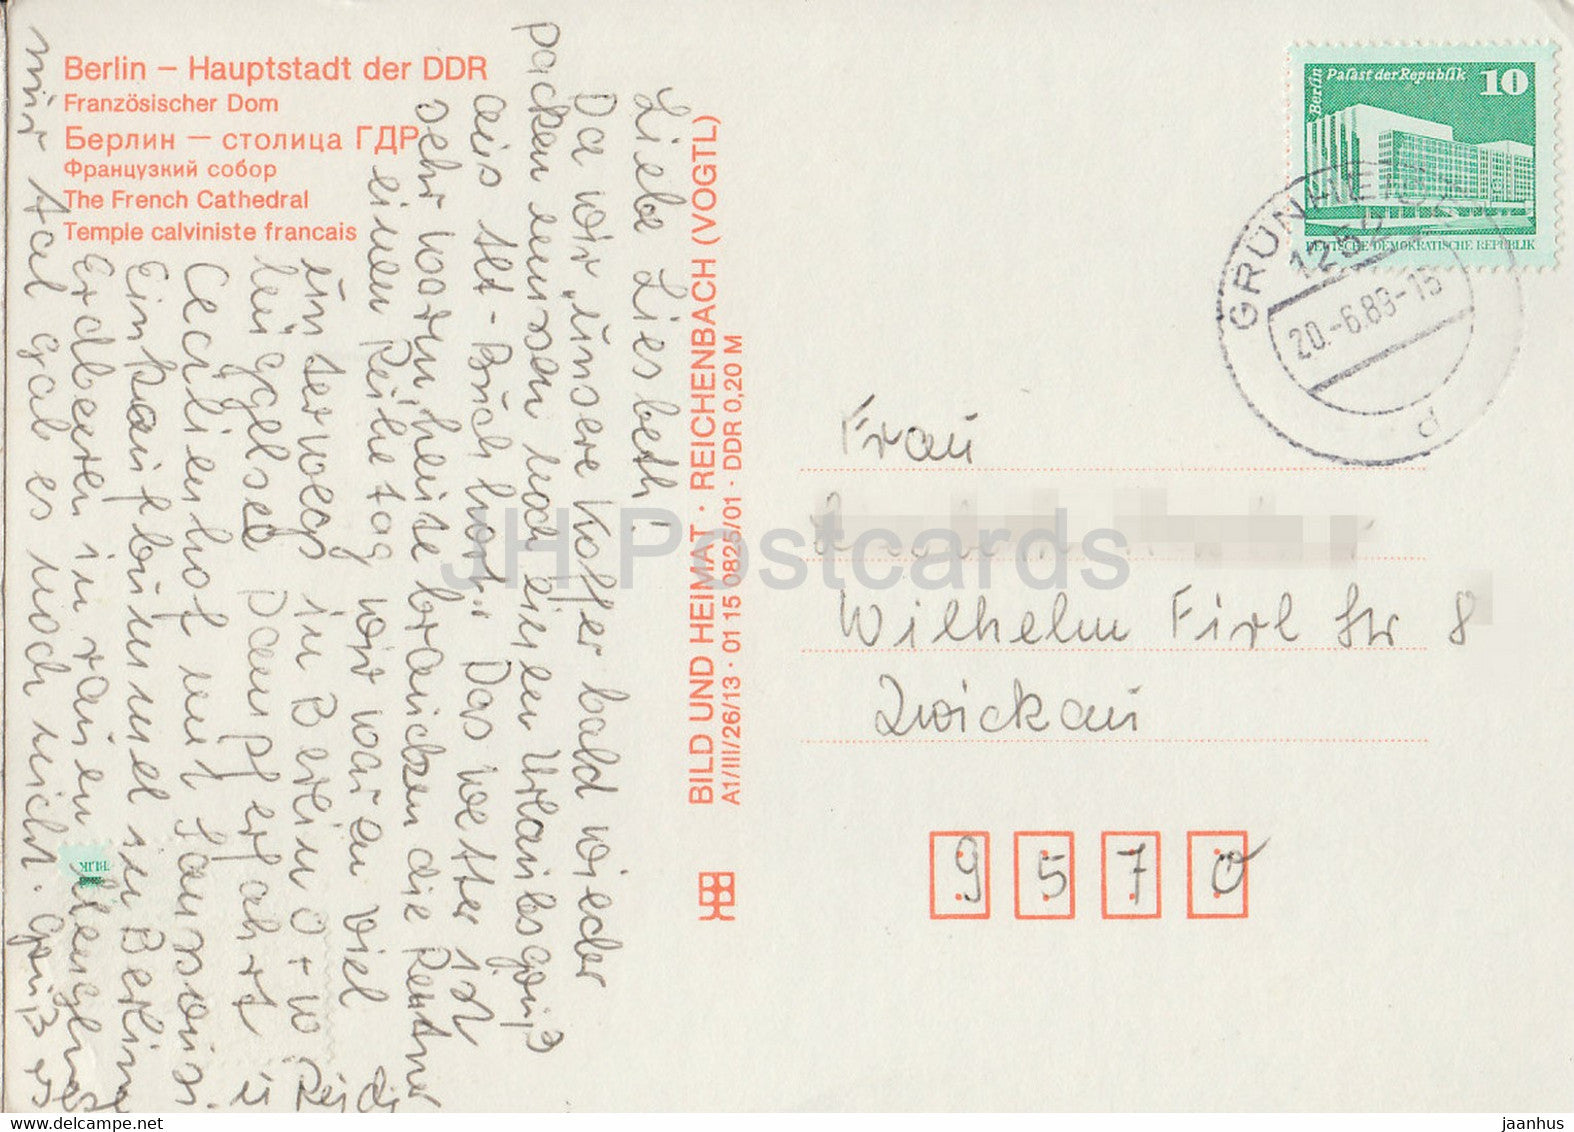 Berlin – Hauptstadt der DDR
Französischer Dom
Берлин — столица ГДР
Французкий собор
The French Cathedral
Temple calviniste francais
Liebe Liesbeth!
Da wir „unsere Koffer bald wieder
packen müssen noch einen Urlaubsgruß
aus Alt-Buchhorst. Das Wetter ist
sehr warm, heute brauchen die Rentner
einen Ruhetag wir waren viel
unterwegs in Berlin O + W
Dampferfahrt
Cecilienhof und Sanssouci
Einkaufbummel in Berlin
Erdbeeren in rauen
nur Aal gab es noch nicht. Gruß
BILD UND HEIMAT · REICHENBACH (VOGTL)
A1/III/26/13 · 01 15 0825/01 · DDR 0,20 M
Berlin Palast der Republik 10
DEUTSCHE DEMOKRATISCHE REPUBLIK
GRÜNHEIDE
1252
20.-6.89-15
d
Frau
Wilhelm Firl Str 8
Zwickau
9570
JH Postcards
delcampe.net
jaanhus